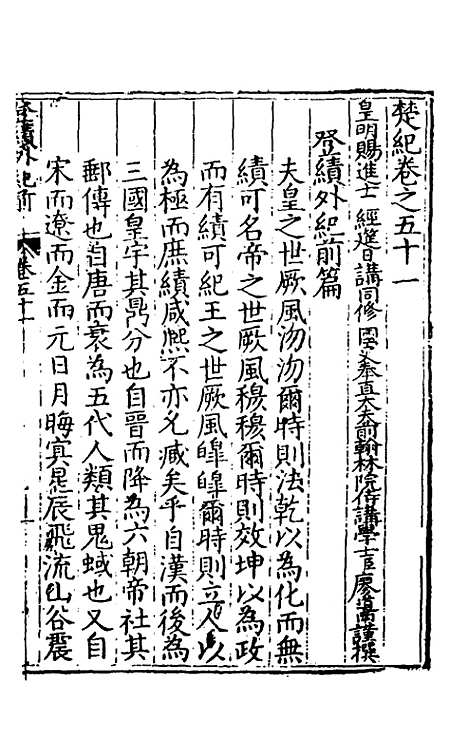 楚紀卷之五十一
皇明賜進士 經筵日講同修 國史奉直大夫前翰林院侍講學士臣廖道南謹撰
登績外紀前篇
夫皇之世厥風沕沕爾時則法乾以為化而無
績可名帝之世厥風穆穆爾時則效坤以為政
而有績可紀王之世厥風皞皞爾時則立人以
為極而庶績咸熙不亦允臧矣乎自漢而後為
三國皇宇其鼎分也自晉而降為六朝帝社其
郵傳也自唐而衰為五代人類其鬼蜮也又自
宋而遼而金而元日月晦冥星辰飛流山谷震
登績外紀前 卷五十一